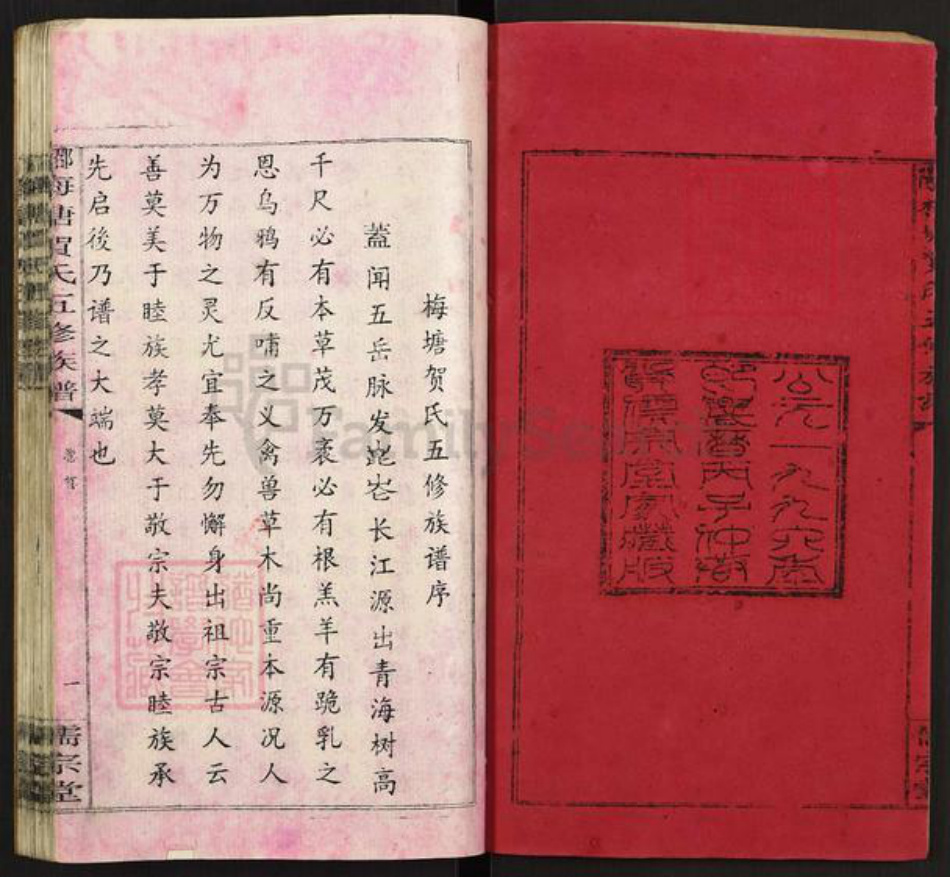 公元一九九六年
岁丙子仲
儒宗堂家藏版
梅塘贺氏五修族谱序
蓋闻五岳脉发崑岺长江源出青海树高
千尺必有本草茂万袤必有根羔羊有跪乳之
恩乌鸦有反哺之义禽兽草木尚重本源况人
为万物之灵尤宜奉先勿懈身出祖宗古人云
善莫美于睦族孝莫大于敬宗夫敬宗睦族承
先启後乃谱之大端也
梅塘賀氏五修族譜
一
儒宗堂
FamilySearch